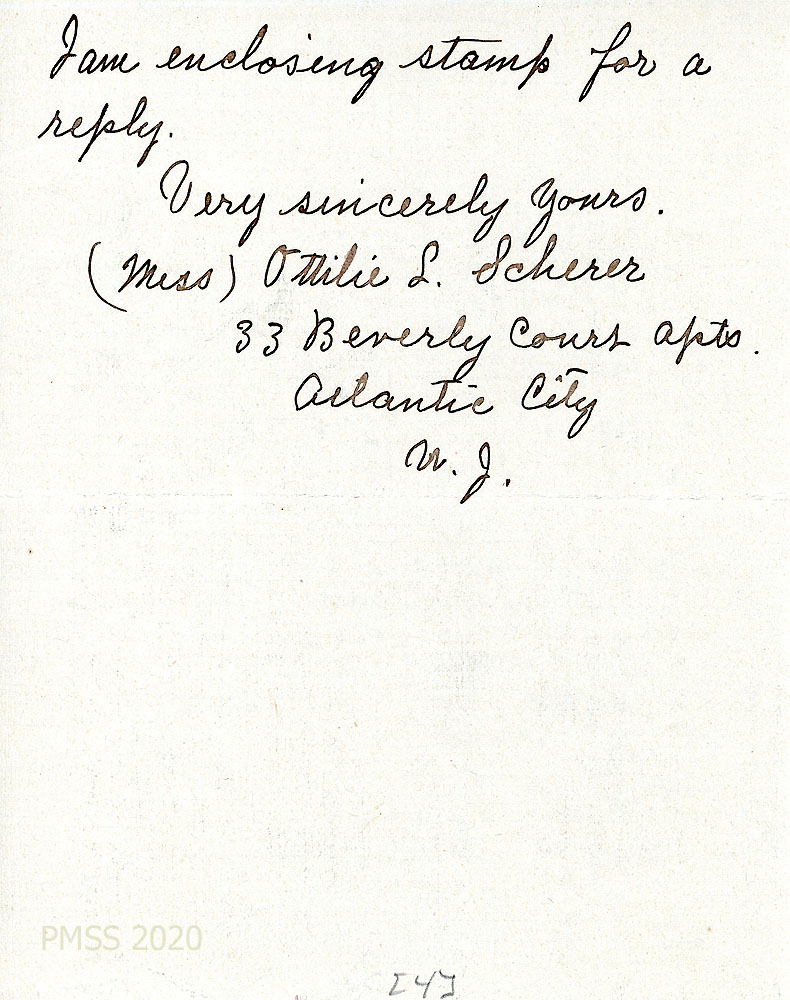 I am enclosing stamp for a
reply.
Very sincerely yours.
(Miss) Ottilie L. Scherer
33 Beverly Court Apts.
Atlantic City
N. J.
PMSS 2020
[4]